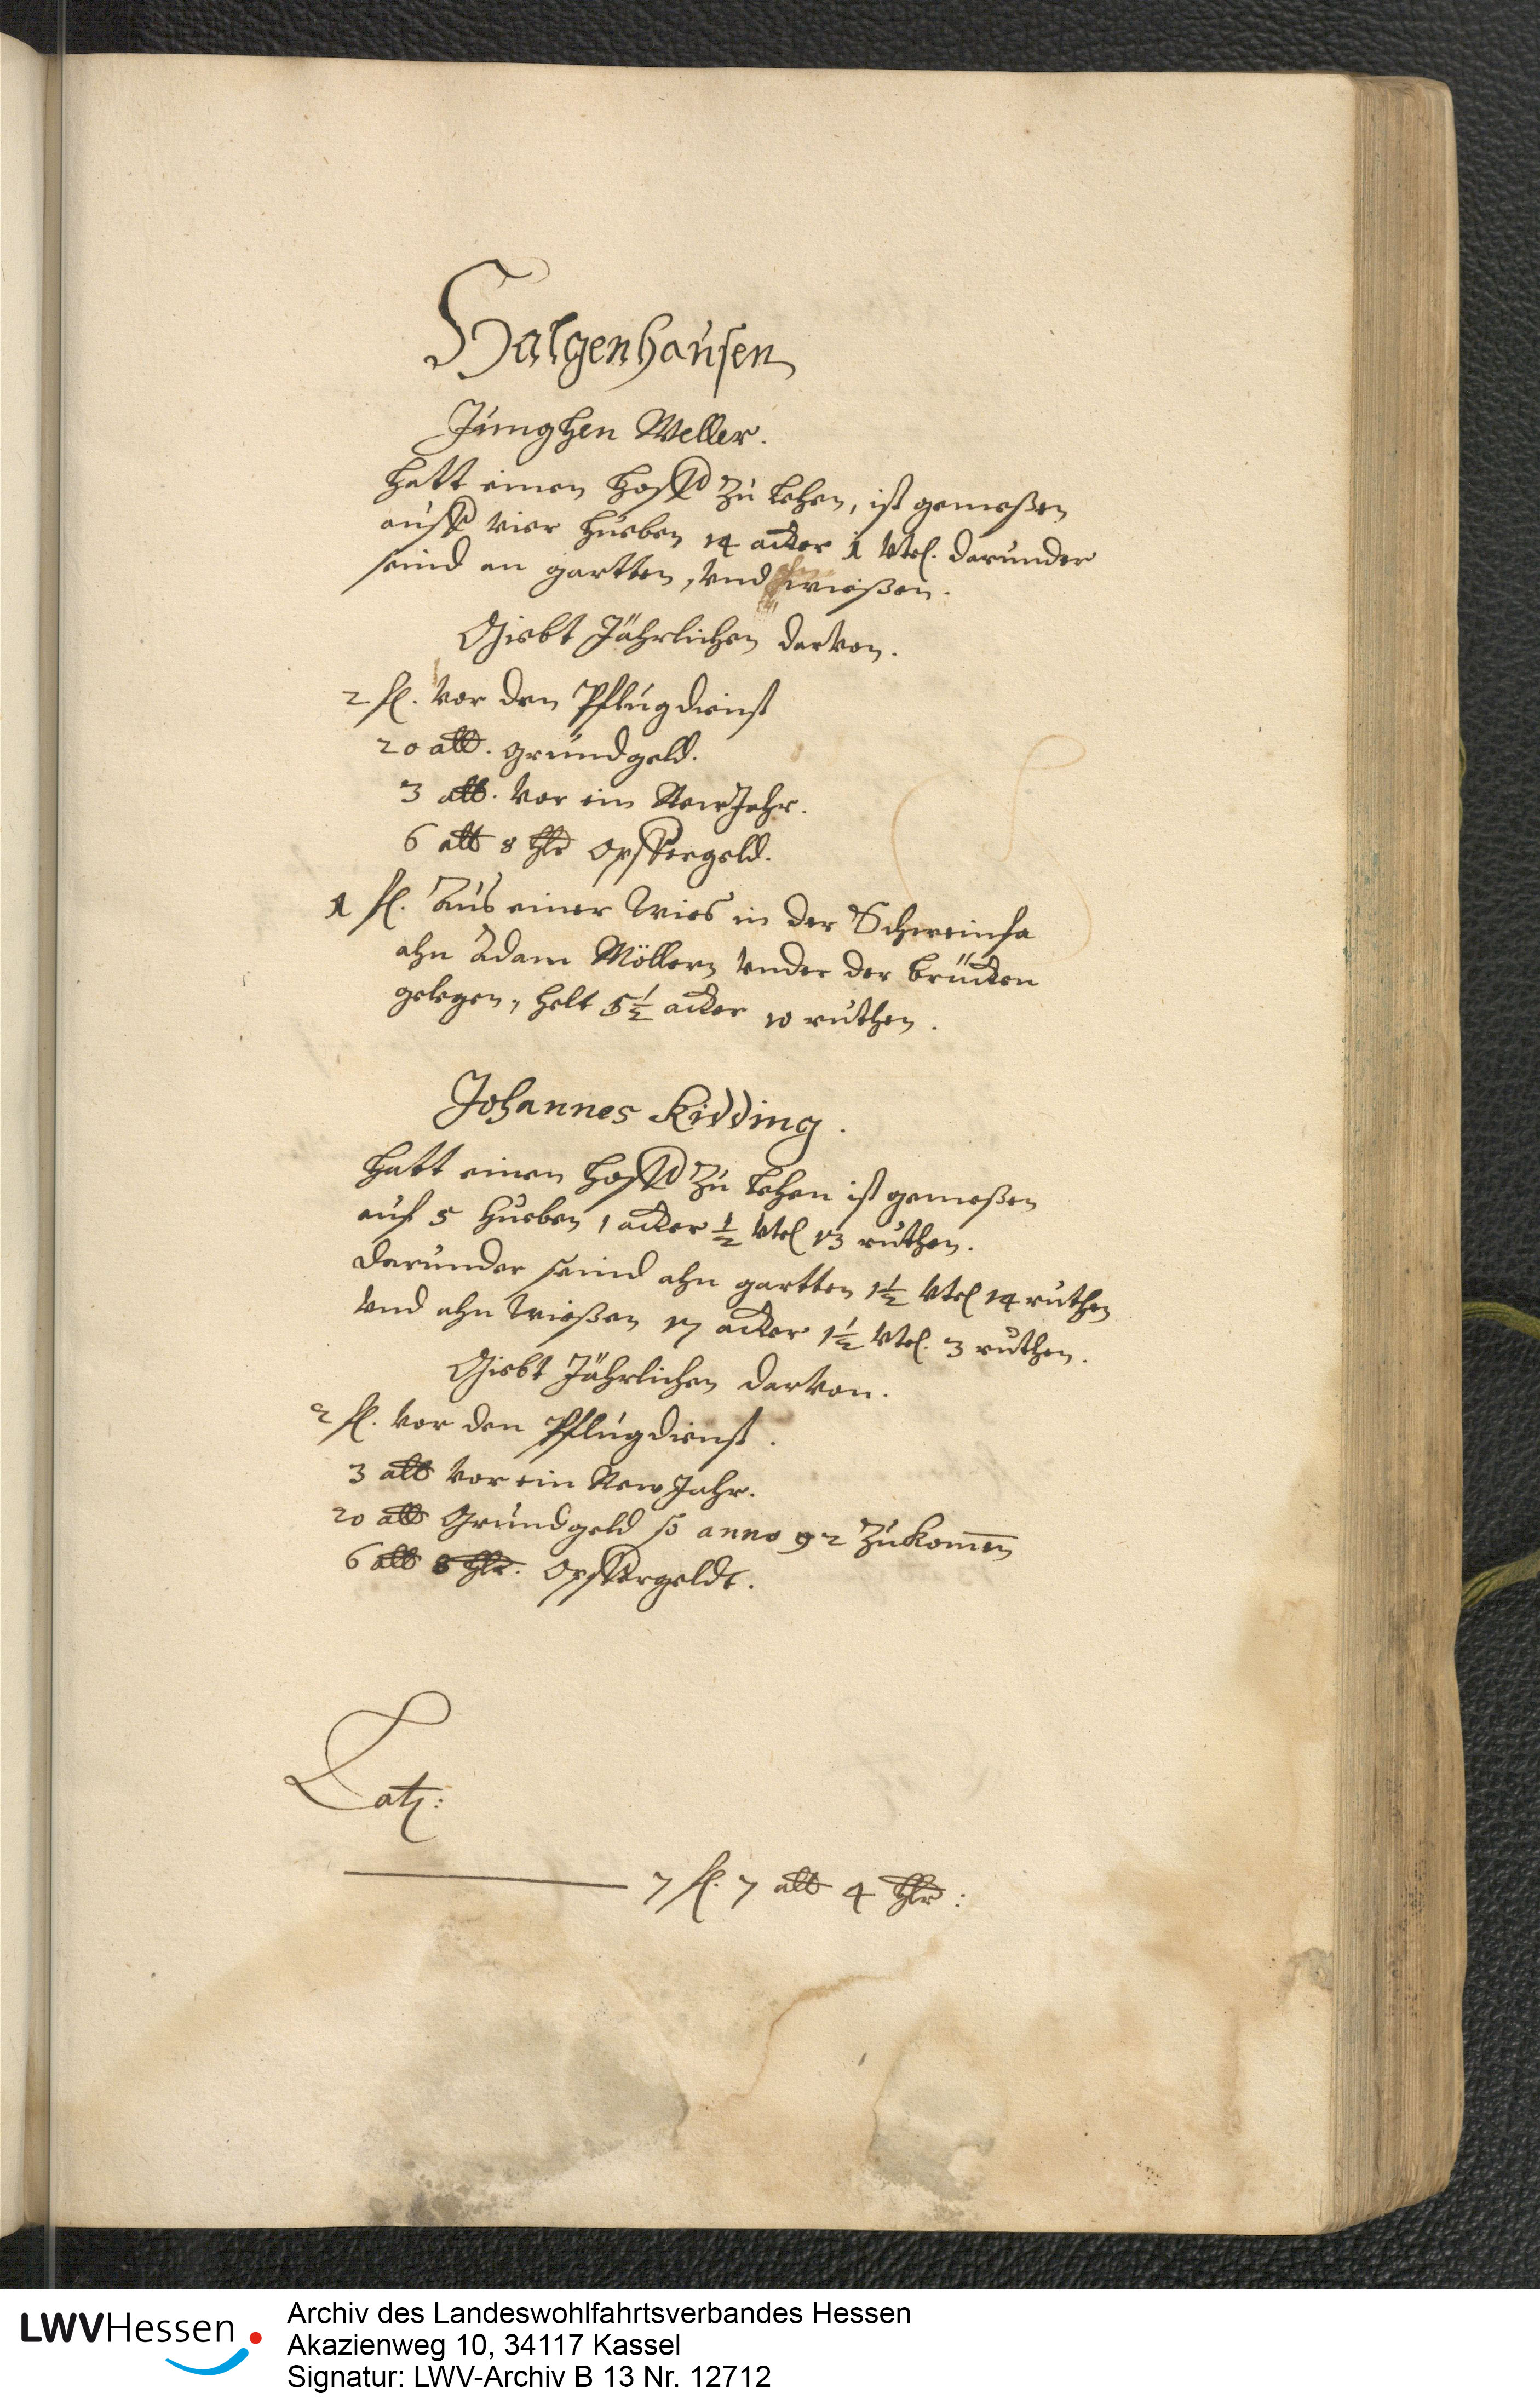 Halgenhausen
Junghen Weller.
Hatt einen Hoff zu Lehen, ist gemeßen
auff vier Hueben 14 acker 1 Vtel. darunder
seind an gartten, Vnd wießen.
Giebt Jährlichen darvon.
2 fl. vor den Pflugdienst
20 alb. grundgeld.
3 alb. vor ein New Jahr.
6 alb 8 hlr Opffergeld.
1 fl. Aus einer Wies in der Schweinfa
ahn Adam Möllern Vnder der brücken
gelegen, helt 5½ acker 10 ruthen.
Johannes Kidding.
Hatt einen Hoff zu Lehen ist gemeßen
auf 5 Hueben 1 acker ½ Vtel 13 ruthen.
Darunder seind ahn gartten 1½ Vtel 14 ruthen
Vnd ahn Wießen 17 acker 1½ Vtel. 3 ruthen.
Giebt Jährlichen darvon.
2 fl. vor den Pflugdienst.
3 alb vor ein New Jahr.
20 alb Grundgeld so anno 92 zukom̄en
6 alb 8 hlr. Opffergeldt.
Lat:
7 fl. 7 alb 4 hlr:
LWVHessen
Archiv des Landeswohlfahrtsverbandes Hessen
Akazienweg 10, 34117 Kassel
Signatur: LWV-Archiv B 13 Nr. 12712